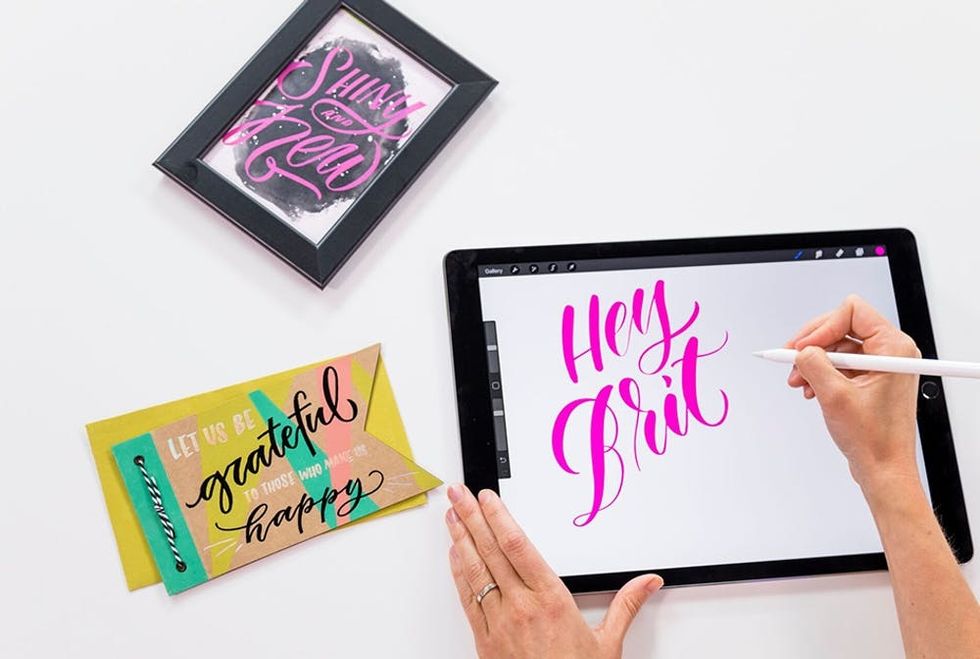 SHINY
AND
New
Gallery
Hey
Brit
LET US BE
grateful
TO THOSE WHO MAKE US
happy